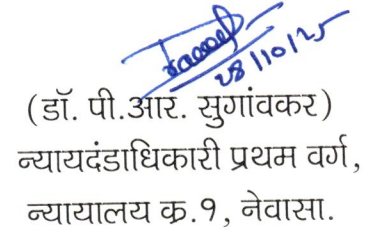 28/10/25
(डॉ. पी.आर. सुगांवकर)
न्यायदंडाधिकारी प्रथम वर्ग,
न्यायालय क्र.१, नेवासा.